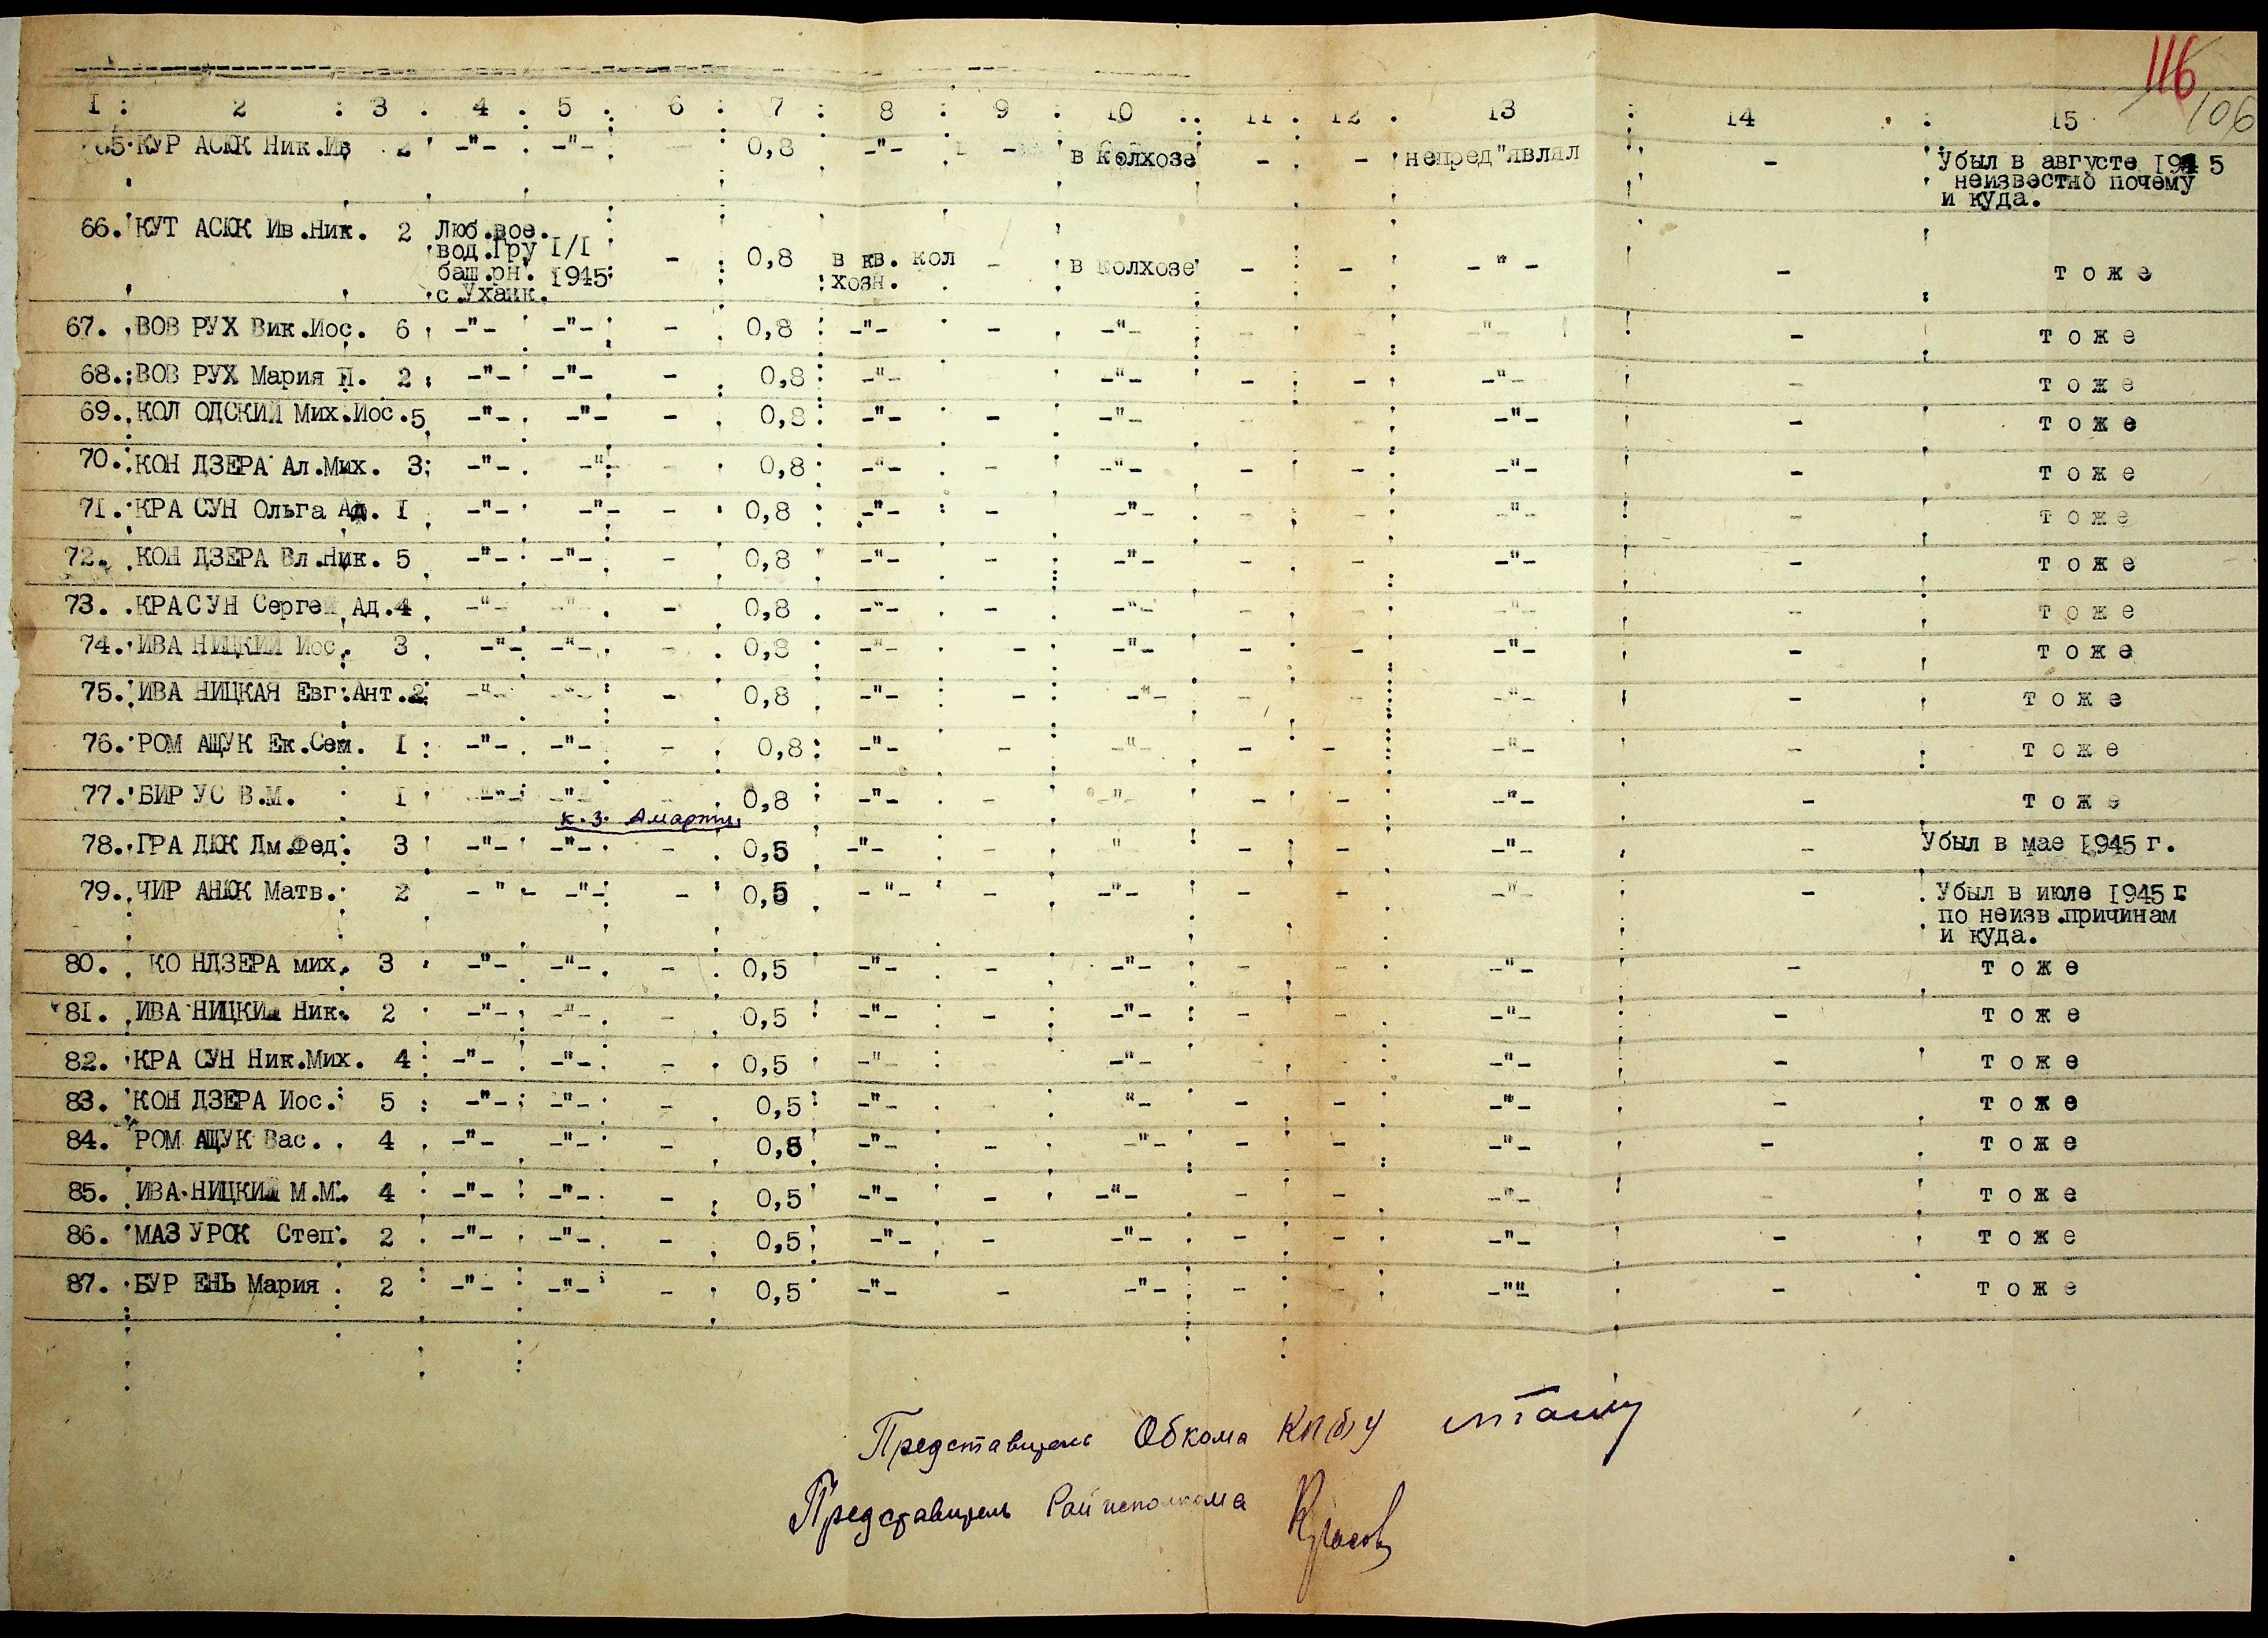 116
106
I : 2 : 3 . 4 . 5 : 6 : 7 : 8 : 9 : 10 : 11 . 12 . 13 : 14 : 15
65. КУРАСЮК Ник.Ив 2 -"- -"- - 0,8 -"- - в колхозе - - непред"являл - Убыл в августе 1945
неизвестно почему
и куда.
66. КУТАСЮК Ив.Ник. 2 Люб.вое.
вод.Гру I/I
баш.рн. 1945 - 0,8 в кв. кол - в колхозе - - -"- - тоже
с.Уханк. хозн.
67. ВОВРУХ Вик.Иос. 6 -"- -"- - 0,8 -"- - -"- - - -"- - тоже
68. ВОВРУХ Мария П. 2 -"- -"- - 0,8 -"- - -"- - - -"- - тоже
69. КОЛОДСКИЙ Мих.Иос. 5 -"- -"- - 0,8 -"- - -"- - - -"- - тоже
70. КОНДЗЕРА Ал.Мих. 3 -"- -"- - 0,8 -"- - -"- - - -"- - тоже
71. КРАСУН Ольга Ад. I -"- -"- - 0,8 -"- - -"- - - -"- - тоже
72. КОНДЗЕРА Вл.Ник. 5 -"- -"- - 0,8 -"- - -"- - - -"- - тоже
73. КРАСУН Сергей Ад. 4 -"- -"- - 0,8 -"- - -"- - - -"- - тоже
74. ИВАНИЦКИЙ Иос. 3 -"- -"- - 0,8 -"- - -"- - - -"- - тоже
75. ИВАНИЦКАЯ Евг.Ант. 2 -"- -"- - 0,8 -"- - -"- - - -"- - тоже
76. РОМАЩУК Ек.Сем. I -"- -"- - 0,8 -"- - -"- - - -"- - тоже
77. БИРУС В.М. I -"- -"- - 0,8 -"- - -"- - - -"- - тоже
к.з.
78. ГРАДЮК Дм.Фед. 3 -"- -"- - 0,5 -"- - " - - -"- - Убыл в мае 1945 г.
79. ЧИРАНЮК Матв. 2 -"- -"- - 0,5 -"- - -"- - - -"- - Убыл в июле 1945 г.
по неизв.причинам
и куда.
80. КОНДЗЕРА мих. 3 -"- -"- - 0,5 -"- - -"- - - -"- - тоже
81. ИВАНИЦКИЙ Ник. 2 -"- -"- - 0,5 -"- - -"- - - -"- - тоже
82. КРАСУН Ник.Мих. 4 -"- -"- - 0,5 -"- - -"- - - -"- - тоже
83. КОНДЗЕРА Иос. 5 -"- -"- - 0,5 -"- - "- - - -"- - тоже
84. РОМАЩУК Вас. 4 -"- -"- - 0,5 -"- - -"- - - -"- - тоже
85. ИВАНИЦКИЙ М.М. 4 -"- -"- - 0,5 -"- - -"- - - -"- - тоже
86. МАЗУРОК Степ. 2 -"- -"- - 0,5 -"- - -"- - - -"- - тоже
87. БУРЕНЬ Мария 2 -"- -"- - 0,5 -"- - -"- - - -""- - тоже
Представитель Обкома КП(б)У
Представитель Райисполкома